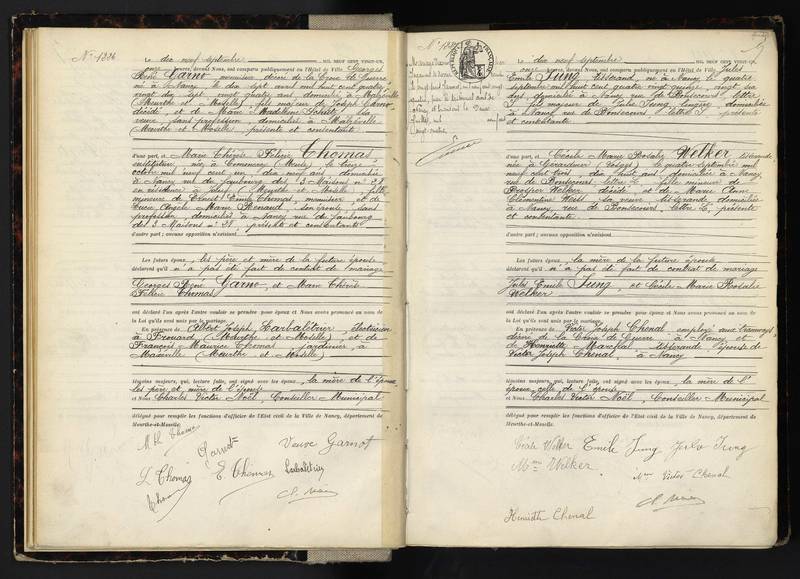 N° 1336
Le dix neuf septembre MIL NEUF CENT VINGT-UN,
onze heures, devant Nous, ont comparu publiquement en l'Hôtel de Ville Georges
René Garno, menuisier, décoré de la Croix de Guerre
né à Nancy le dix sept avril mil huit cent quatre
vingt dix sept, vingt quatre ans, domicilié à Malzéville
(Meurthe et Moselle), fils majeur de Joseph Garno
décédé, et de Marie Madeleine sa
veuve, sans profession, domiciliée à Malzéville
(Meurthe et Moselle), présente et consentante
d'une part, et Marie Thérèse Félicie Thomas
institutrice, née à Commercy (Meuse), le treize
octobre mil neuf cent un, dix neuf ans, domiciliée
à Nancy rue du faubourg des 3 Maisons n°
en résidence à (Meurthe et Moselle), fille
mineure de Ernest Emile Thomas, menuisier, et de
Lucie Marie Renaud, son épouse, sans
profession, domiciliés à Nancy rue du faubourg
des 3 Maisons n° présents et consentants
d'autre part; aucune opposition n'existant
Les futurs époux, les père et mère de la future épouse
déclarent qu'il n'a pas été fait de contrat de mariage
Georges René Garno, et Marie Thérèse
Félicie Thomas
ont déclaré l'un après l'autre vouloir se prendre pour époux et Nous avons prononcé au nom de
la Loi qu'ils sont unis par le mariage.
En présence de Albert Joseph Harbalétrier, électricien
à Frouard (Meurthe et Moselle), et de
François Maurice Thomas, jardinier, à
Maxéville (Meurthe et Moselle)
témoins majeurs, qui, lecture faite, ont signé avec les époux, la mère de l'époux
les père et mère de l'épouse
et Nous Charles Victor Noël, Conseiller Municipal
délégué pour remplir les fonctions d'officier de l'Etat civil de la Ville de Nancy, département de
Meurthe-et-Moselle.
Garnot
Veuve Garnot
L Thomas
E. Thomas
Thomas
N° 1337
Le dix neuf septembre MIL NEUF CENT VINGT-UN,
onze heures, devant Nous, ont comparu publiquement en l'Hôtel de Ville Jules
Emile Jung, tisserand, né à Nancy le quatre
septembre mil huit cent quatre vingt quinze, vingt six
ans, domicilié à Nancy, rue de Bonsecours, lettre
fils majeur de Julie Jung, lingère, domiciliée
à Nancy rue de Bonsecours, lettre présente
et consentante
d'une part, et Cécile Marie Rosalie Welker, tisserande,
née à Gérardmer (Vosges) le quatre septembre mil
neuf cent trois, dix huit ans, domiciliée à Nancy,
rue de Bonsecours lettre fille mineure de
Prosper Welker, décédé, et de Marie Anne
Clémentine West, sa veuve, tisserande domiciliée
à Nancy, rue de Bonsecours, lettre présente
et consentante.
d'autre part; aucune opposition n'existant
Les futurs époux, la mère de la future épouse
déclarent qu'il n'a pas été fait de contrat de mariage
Jules Emile Jung, et Cécile Marie Rosalie
Welker
ont déclaré l'un après l'autre vouloir se prendre pour époux et Nous avons prononcé au nom de
la Loi qu'ils sont unis par le mariage.
En présence de Victor Joseph Chenal, employé aux tramways,
décoré de la Croix de Guerre, à Nancy et
de Henriette Maréchal, tisserande, épouse de
Victor Joseph Chenal, à Nancy
témoins majeurs, qui, lecture faite, ont signé avec les époux, la mère de l'
époux, celle de l'épouse
et Nous Charles Victor Noël, Conseiller Municipal
délégué pour remplir les fonctions d'officier de l'Etat civil de la Ville de Nancy, département de
Meurthe-et-Moselle.
Cécile Welker Emile Jung Julie Jung
Mme Welker
Mme Victor Chenal
Henriette Chenal